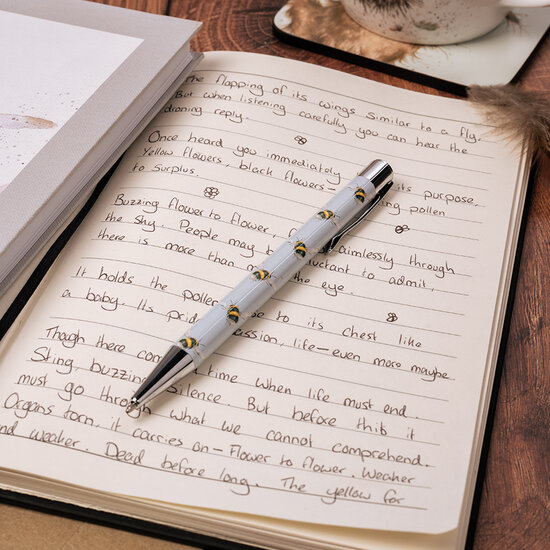 The flapping of its wings similar to a fly,
But when listening carefully you can hear the
droning reply.
Once heard you immediately its purpose.
Yellow flowers, black flowers - pollen
to surplus.
Buzzing flower to flower, aimlessly through
the sky. People may be reluctant to admit,
there is more than the eye.
It holds the pollen to its chest like
a baby. Its pride, life - even more maybe.
Though there time when life must end.
Sting, buzzing silence. But before this it
must go through what we cannot comprehend.
Organs torn, it carries on - Flower to flower. Weaker
and weaker. Dead before long. The yellow for